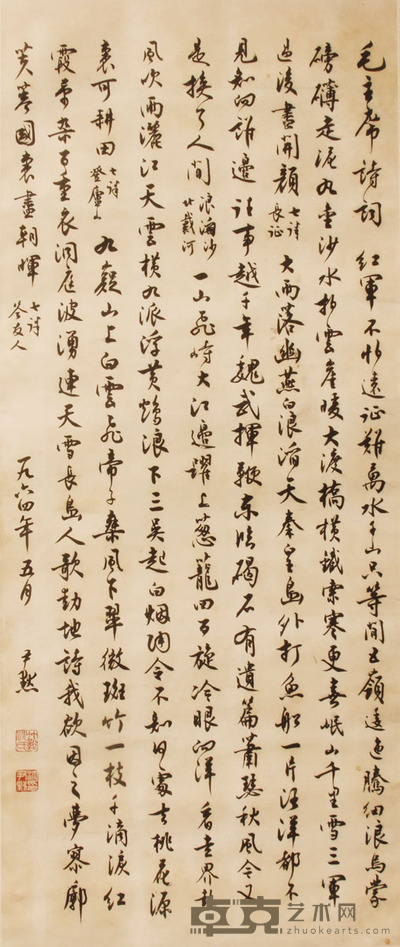 毛主席詩詞 红軍不怕遠征難萬水千山只等閒五嶺逶迤騰细浪烏蒙
磅礴走泥丸金沙水拍雲崖暖大渡橋横鐵索寒更喜岷山千里雪三軍
過後盡開顏 七詩 長征 大雨落幽燕白浪滔天秦皇島外打魚船一片汪洋都不
見知向誰邊往事越千年魏武揮鞭東临碣石有遺篇蕭瑟秋風今又
是換了人間 浪淘沙 北戴河 一山飛峙大江邊躍上葱蘢四百旋冷眼向洋看世界熱
風吹雨灑江天雲横九派浮黄鶴浪下三吴起白烟陶令不知何處去桃花源
裏可耕田 七詩 登廬山 九嶷山上白雲飛帝子乘風下翠微斑竹一枝千滴淚红
霞萬朶百重衣洞庭波湧連天雪長島人歌動地詩我欲因之夢寥廓
芙蓉國裏盡朝暉 七詩 答友人 一九六四年五月 尹默
卓克艺术网
www.zhuokearts.com